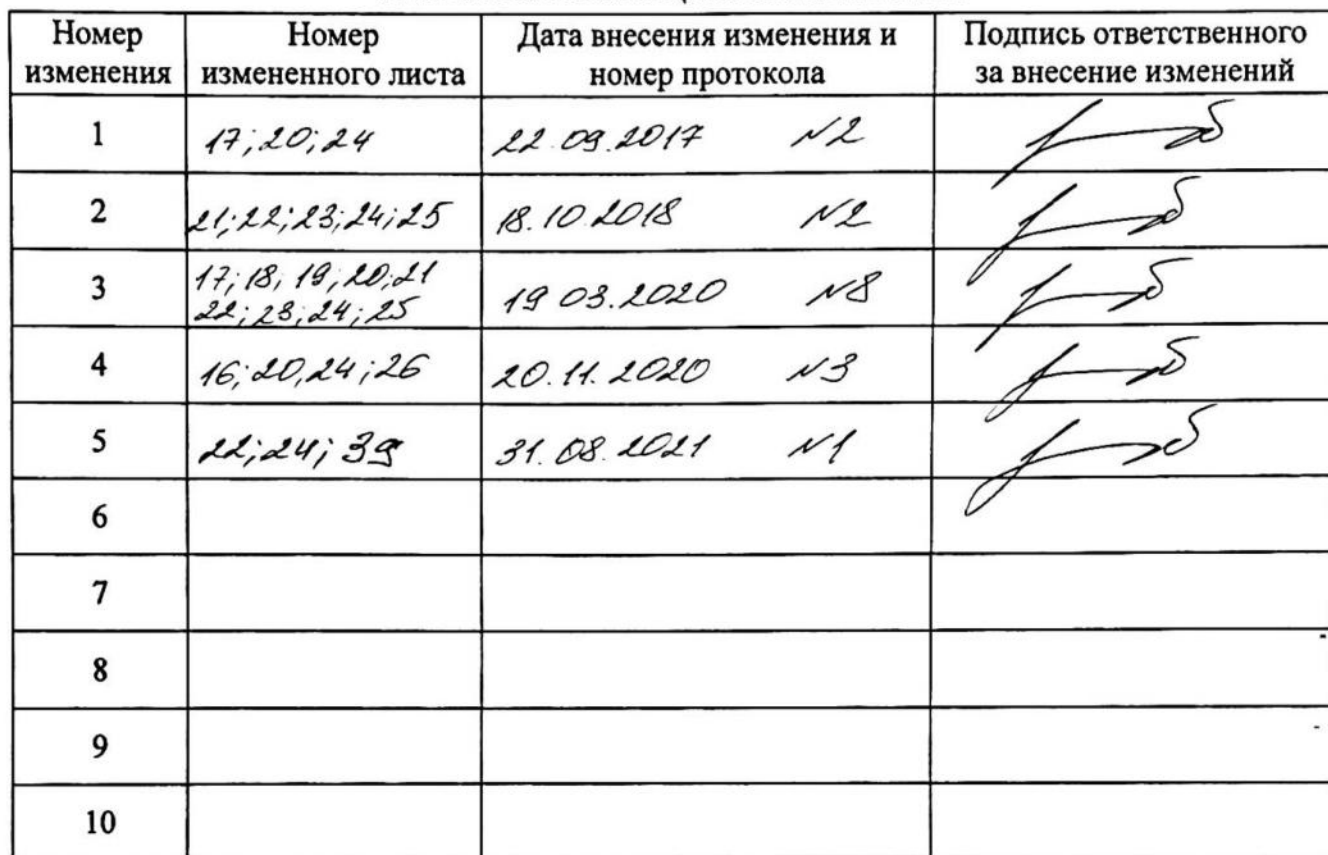 Номер изменения | Номер измененного листа | Дата внесения изменения и номер протокола | Подпись ответственного за внесение изменений
1 | 17; 20; 24 | 22.09.2017 №2
2 | 21; 22; 23; 24; 25 | 18.10.2018 №2
3 | 17; 18; 19; 20; 21 22; 23; 24; 25 | 19 03.2020 №8
4 | 16; 20, 24; 26 | 20.11.2020 №3
5 | 22; 24; 39 | 31.08.2021 №1
6
7
8
9
10